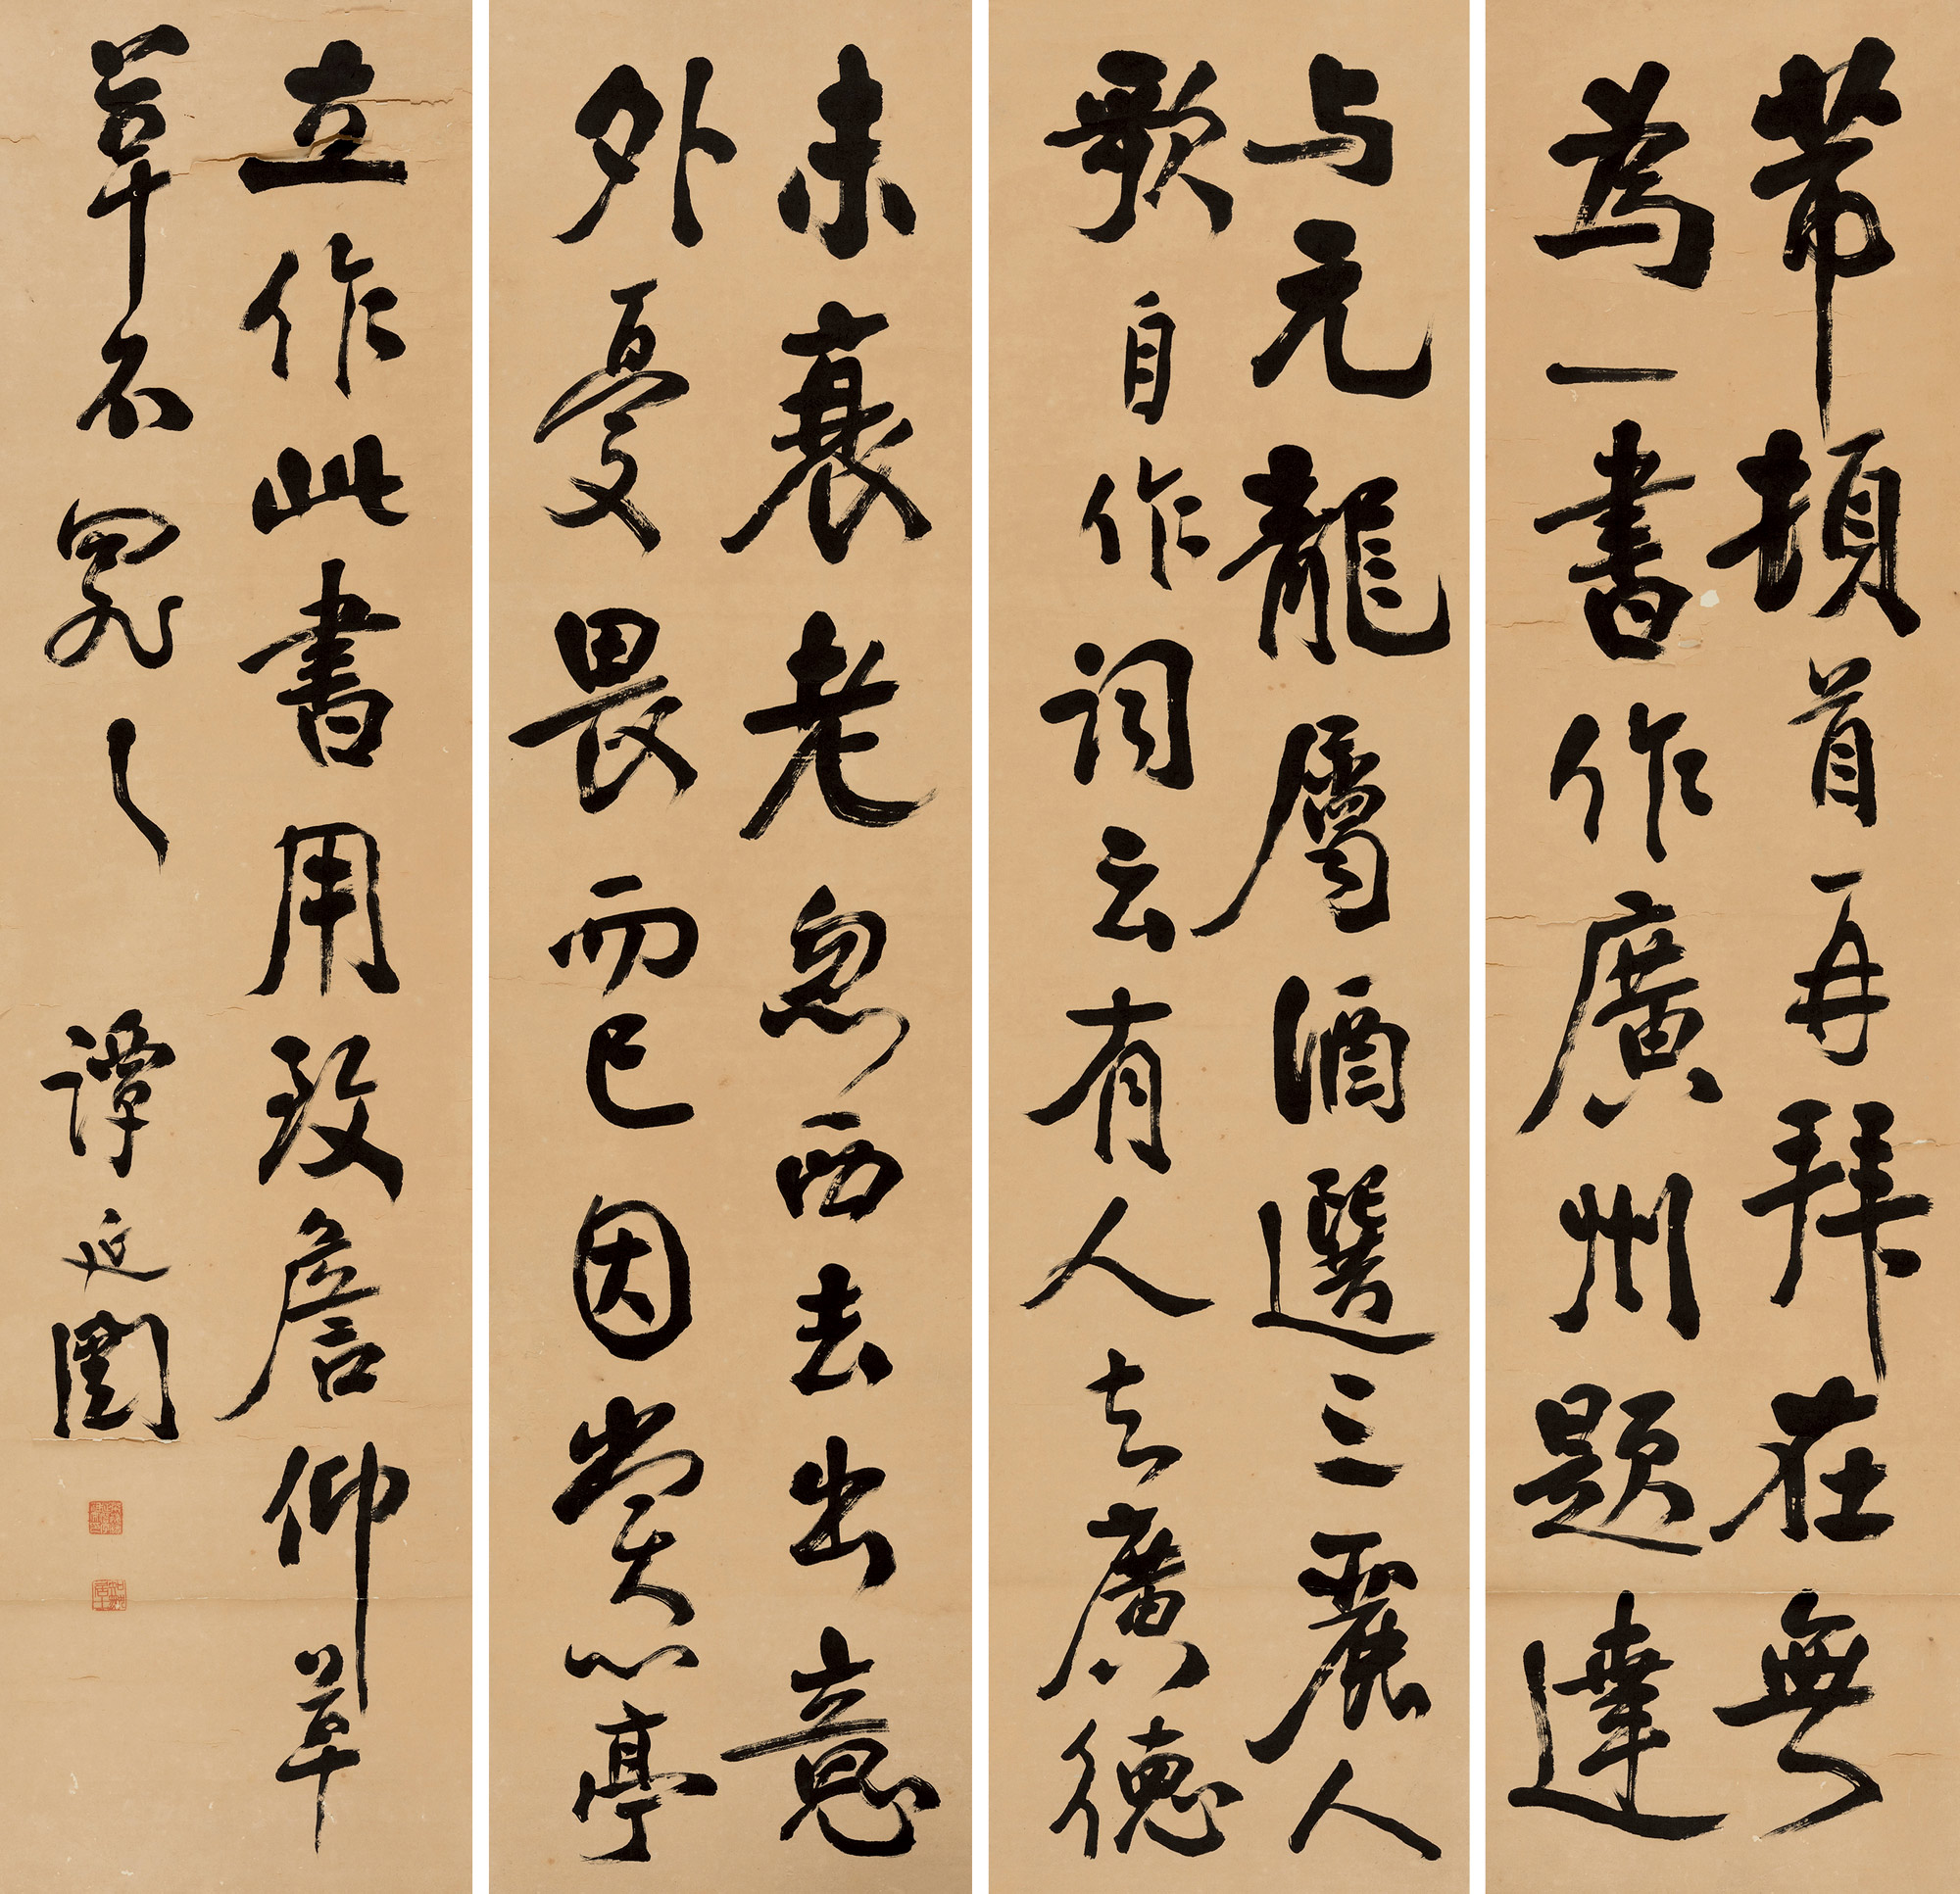 芾頓首再拜在無
為一書作廣州題達
与元龍屬酒選三麗人
歌自作詞云有人去廣德
未衰老忽西去出意
外憂畏而已因賞心亭
立作此書用致詹仰草
草不罪之
譚延闓